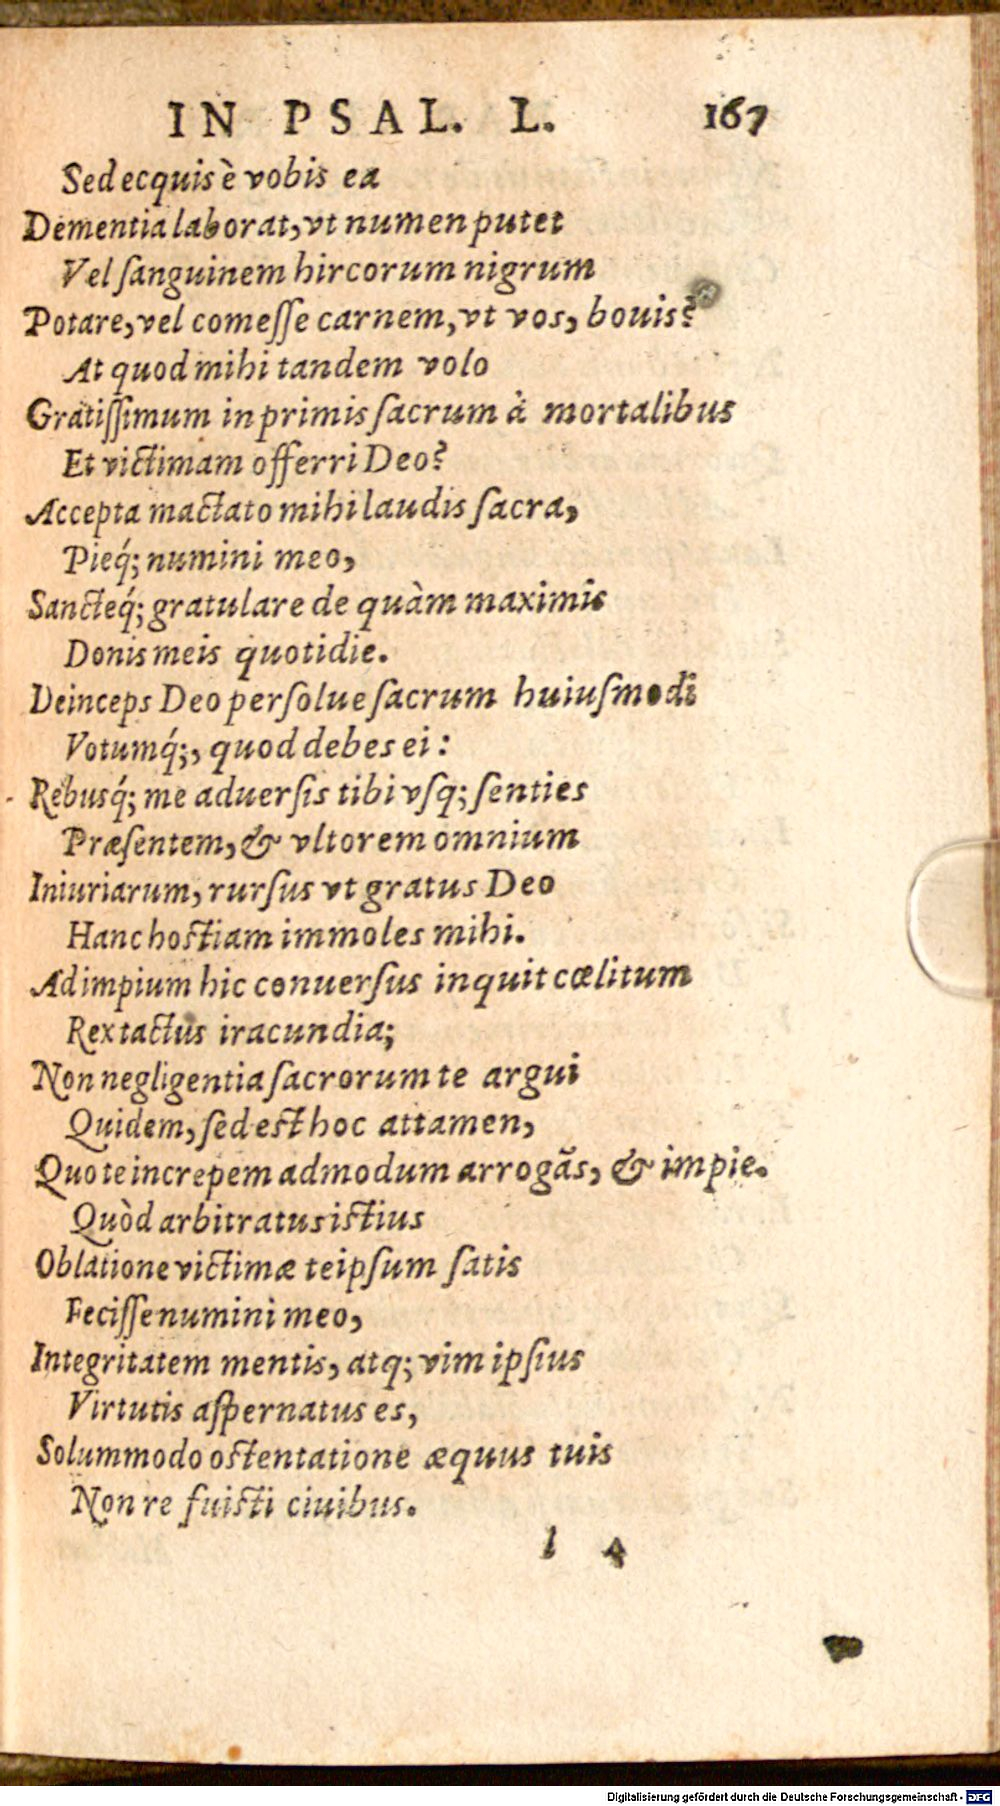 IN PSAL. L. 167
Sed ecquis è vobis ea
Dementia laborat, vt numen putet
Vel ſanguinem hircorum nigrum
Potare, vel comeſſe carnem, vt vos, bouis?
At quod mihi tandem volo
Gratiſſimum in primis ſacrum à mortalibus
Et victimam offerri Deo?
Accepta mactato mihi laudis ſacra,
Pieq́; numini meo,
Sancteq́; gratulare de quàm maximis
Donis meis quotidie.
Deinceps Deo perſolue ſacrum huiuſmodi
Votumq́;, quod debes ei:
Rebusq́; me aduerſis tibi vſq; ſenties
Præſentem, & vltorem omnium
Iniuriarum, rurſus vt gratus Deo
Hanc hoſtiam immoles mihi.
Ad impium hic conuerſus inquit cœlitum
Rex tactus iracundia;
Non negligentia ſacrorum te argui
Quidem, ſed eſt hoc attamen,
Quo te increpem admodum arrogãs, & impie.
Quòd arbitratus iſtius
Oblatione victimæ teipſum ſatis
Feciſſe numini meo,
Integritatem mentis, atq; vim ipſius
Virtutis aſpernatus es,
Solummodo oſtentatione æquus tuis
Non re fuiſti ciuibus.
l 4
Digitalisierung gefördert durch die Deutsche Forschungsgemeinschaft - DFG